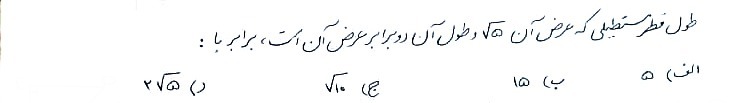 طول قطر مستطیلی که عرض آن √۵ و طول آن دو برابر عرض آن است، برابر با :
الف) ۵ ب) ۱۵ ج) √۱۰ د) ۲√۵